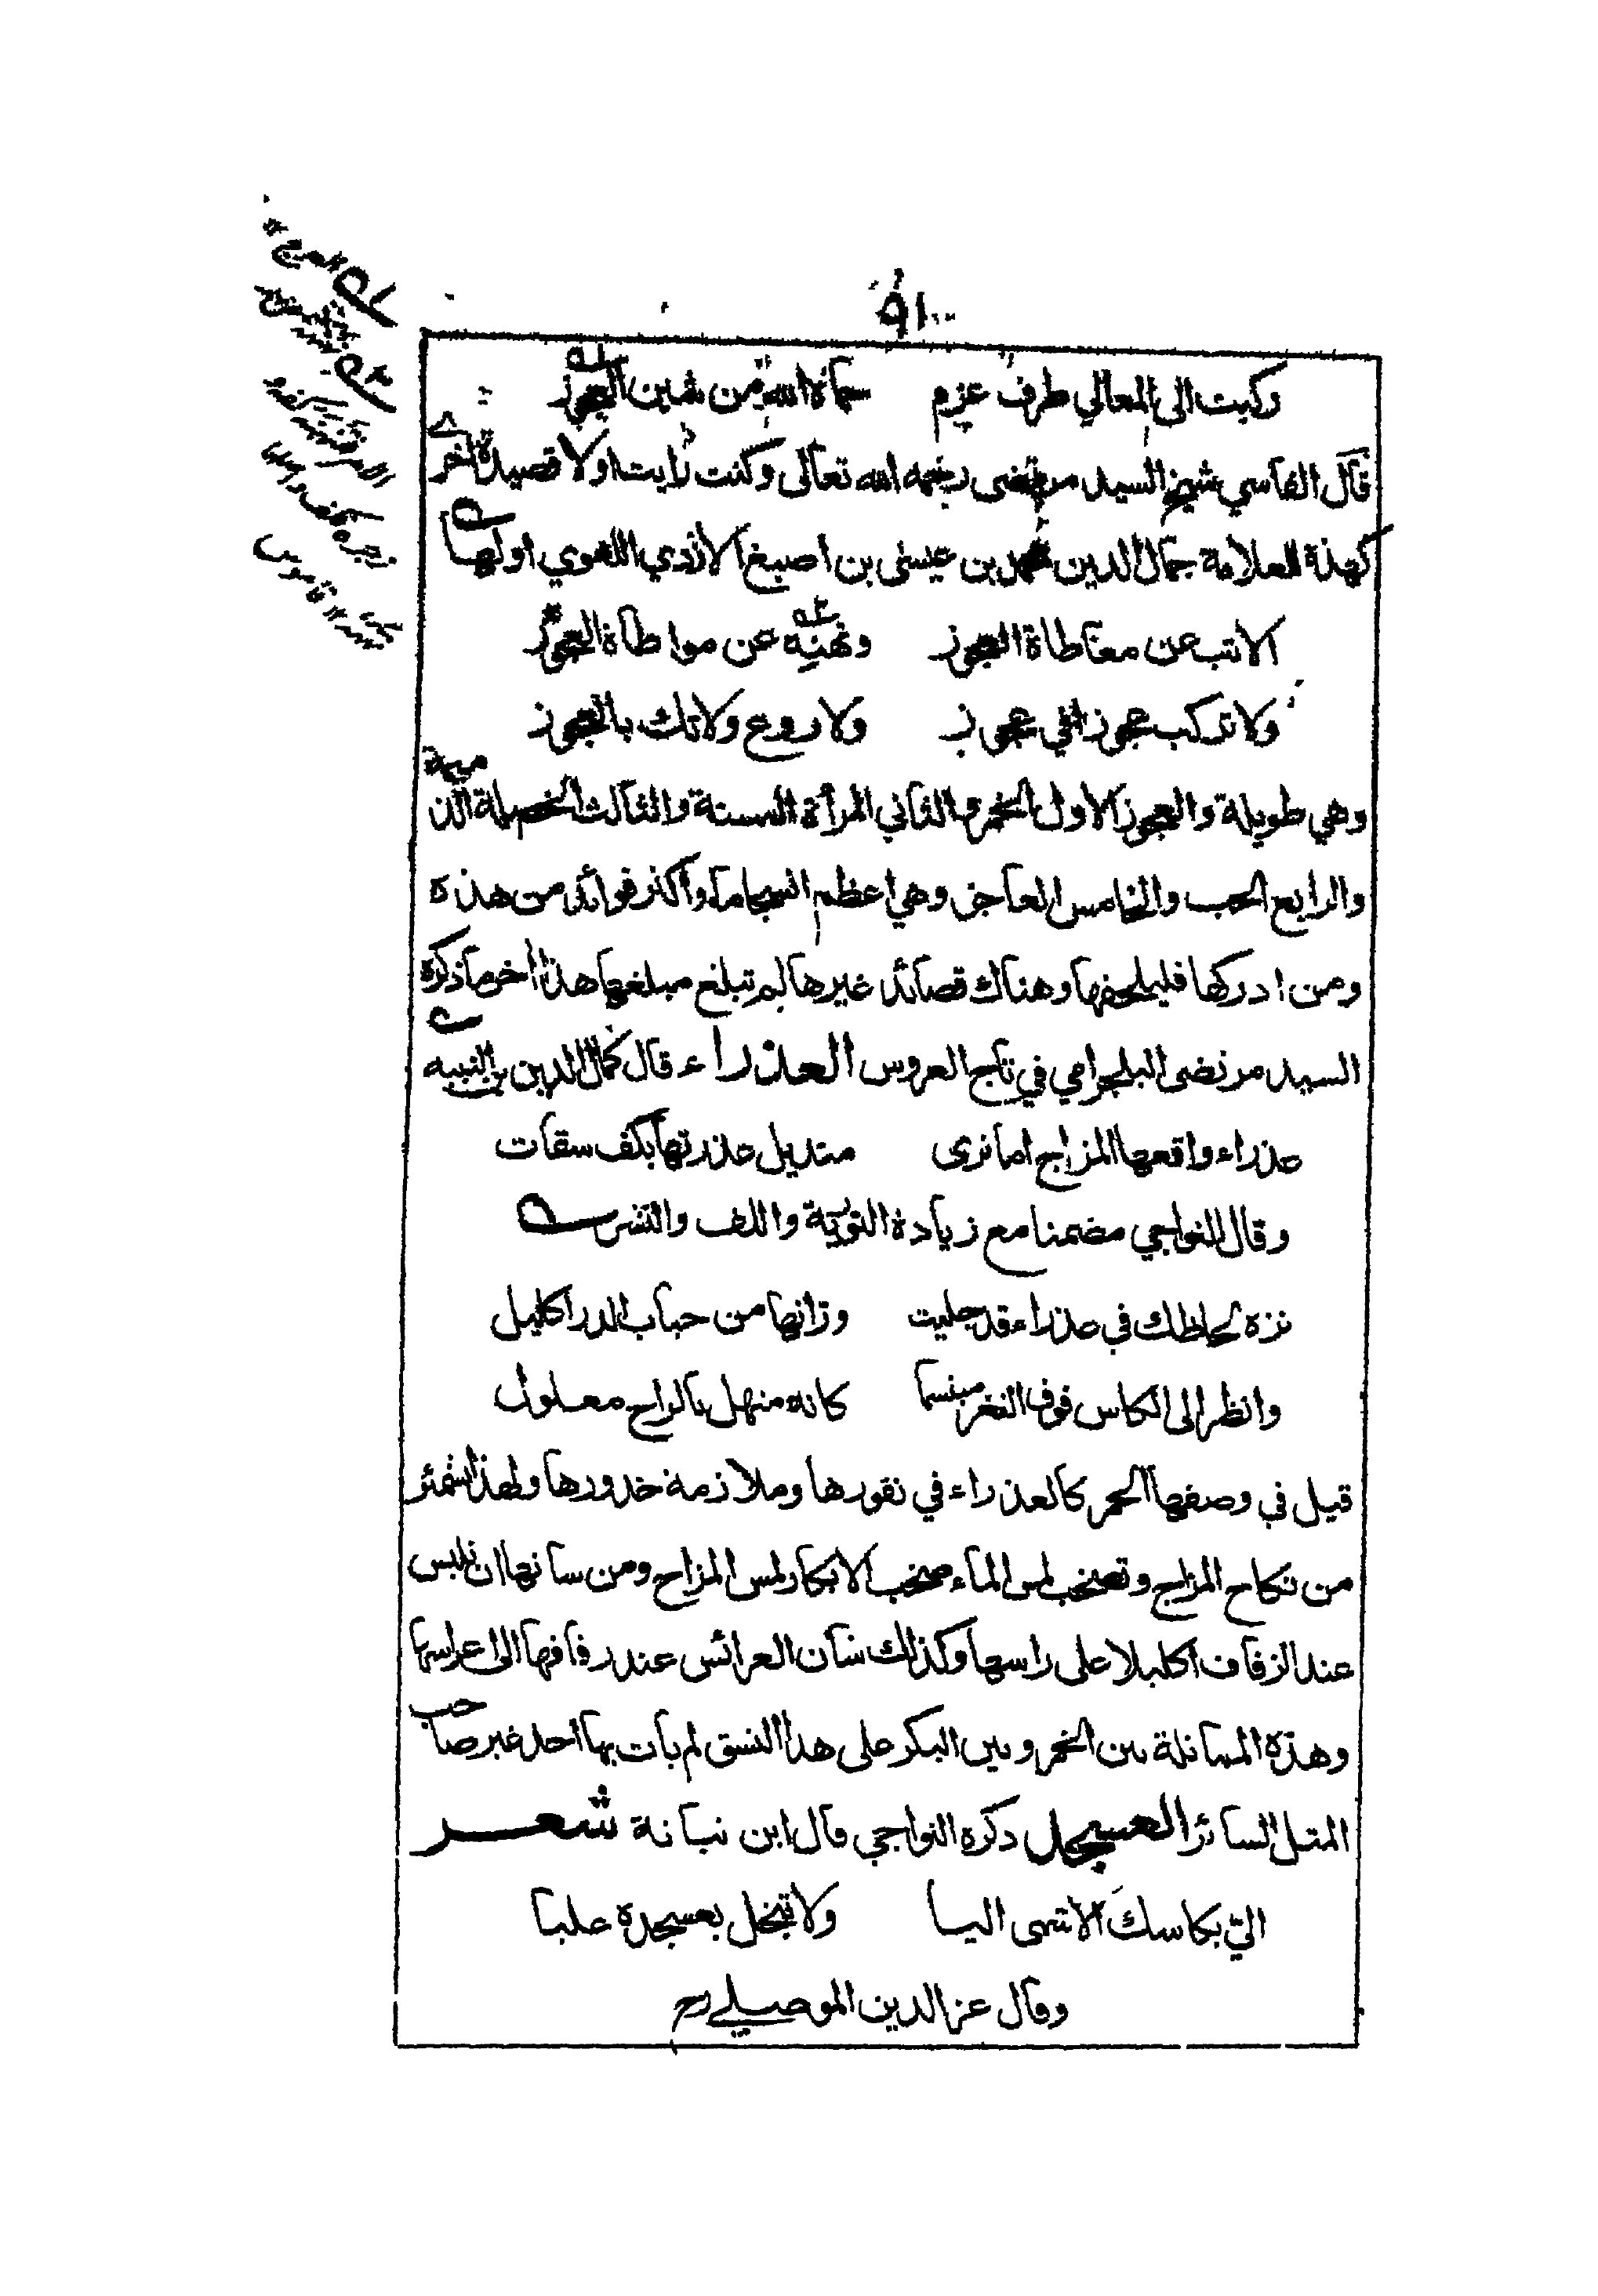 ٩١
ركبت الى المعالي طرف عزم حماه الله من شين العجوز
قال الفاسي شيخ السيد مرتضى رحمه الله تعالى وكنت رايت اولا قصيدة اخرى
كهذة للعلامة جمال الدين محمد بن عيسى بن اصبغ الازدي اللغوي اولها
الا تب عن معاطاة العجوز ونهنه عن مواطاة العجوز
ولا تركب عجوزا في عجوز ولا روع ولا تك بالعجوز
وهي طويلة والعجوز الاول الخمر والثاني المرأة المسنة والثالث الخصلة الذميمة
والرابع الحب والخامس العاجز وهي اعظم انسجاما واكثر فوائد من هذه
ومن ادركها فليلحقها وهناك قصائد غيرها لم تبلغ مبلغها هذا اخر ما ذكره
السيد مرتضى البلجرامي في تاج العروس العذراء قال كمال الدين بن النبيه
عذراء واقعها المزاج اما ترى منديل عذرتها بكف سقات
وقال النواجي مضمنا مع زيادة التورية واللف والنشر
نزه لحاظك في عذراء قد جليت وزانها من حباب الدر اكليل
وانظر الى الكاس فوق الثغر مبتسما كانه منهل بالراح معلول
قيل في وصفها الخمر كالعذراء في نفورها وملازمة خدورها ولهذا تشمئز
من نكاح المزاج وتصخب لمس الماء صخب الابكار لمس المزاح ومن شانها ان تلبس
عند الزفاف اكليلا على راسها وكذلك شان العرائس عند زفافها الى اعراسها
وهذه المماثلة بين الخمر وبين البكر على هذا النسق لم يات بها احد غير صاحب
المثل السائر العسجد ذكره النواجي قال ابن نباتة شعر
التي بكاسك الاشهى اليا ولا تبخل بعسجده عليا
وقال عز الدين الموصلي رح